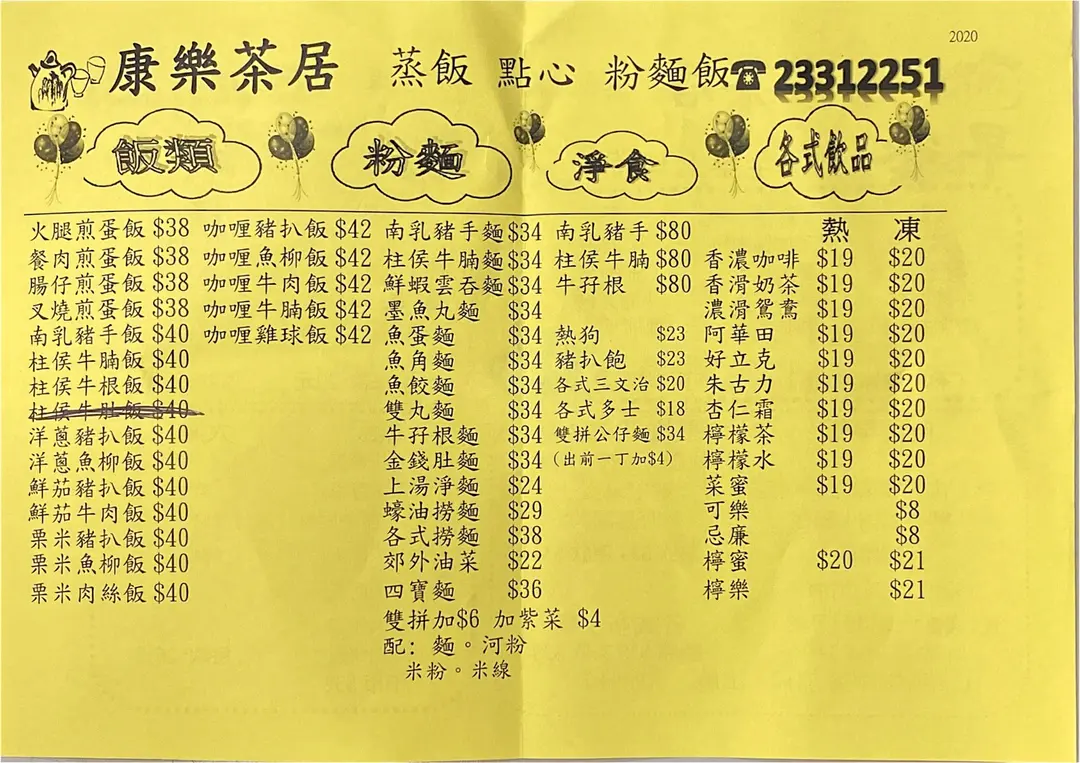 2020
康樂茶居 蒸飯 點心 粉麵飯☎23312251
飯類 粉麵 淨食 各式飲品
火腿煎蛋飯 $38
餐肉煎蛋飯 $38
腸仔煎蛋飯 $38
叉燒煎蛋飯 $38
南乳豬手飯 $40
柱侯牛腩飯 $40
柱侯牛根飯 $40
柱侯牛肚飯 $40
洋蔥豬扒飯 $40
洋蔥魚柳飯 $40
鮮茄豬扒飯 $40
鮮茄牛肉飯 $40
栗米豬扒飯 $40
栗米魚柳飯 $40
栗米肉絲飯 $40
咖喱豬扒飯 $42
咖喱魚柳飯 $42
咖喱牛肉飯 $42
咖喱牛腩飯 $42
咖喱雞球飯 $42
南乳豬手麵 $34
柱侯牛腩麵 $34
鮮蝦雲吞麵 $34
墨魚丸麵 $34
魚蛋麵 $34
魚角麵 $34
魚餃麵 $34
雙丸麵 $34
牛孖根麵 $34
金錢肚麵 $34
上湯淨麵 $24
蠔油撈麵 $29
各式撈麵 $38
郊外油菜 $22
四寶麵 $36
雙拼加$6 加紫菜 $4
配: 麵。河粉
米粉。米線
南乳豬手 $80
柱侯牛腩 $80
牛孖根 $80
熱狗 $23
豬扒飽 $23
各式三文治 $20
各式多士 $18
雙拼公仔麵 $34
(出前一丁加$4)
熱 凍
香濃咖啡 $19 $20
香滑奶茶 $19 $20
濃滑鴛鴦 $19 $20
阿華田 $19 $20
好立克 $19 $20
朱古力 $19 $20
杏仁霜 $19 $20
檸檬茶 $19 $20
檸檬水 $19 $20
菜蜜 $19 $20
可樂 $8
忌廉 $8
檸蜜 $20 $21
檸樂 $21